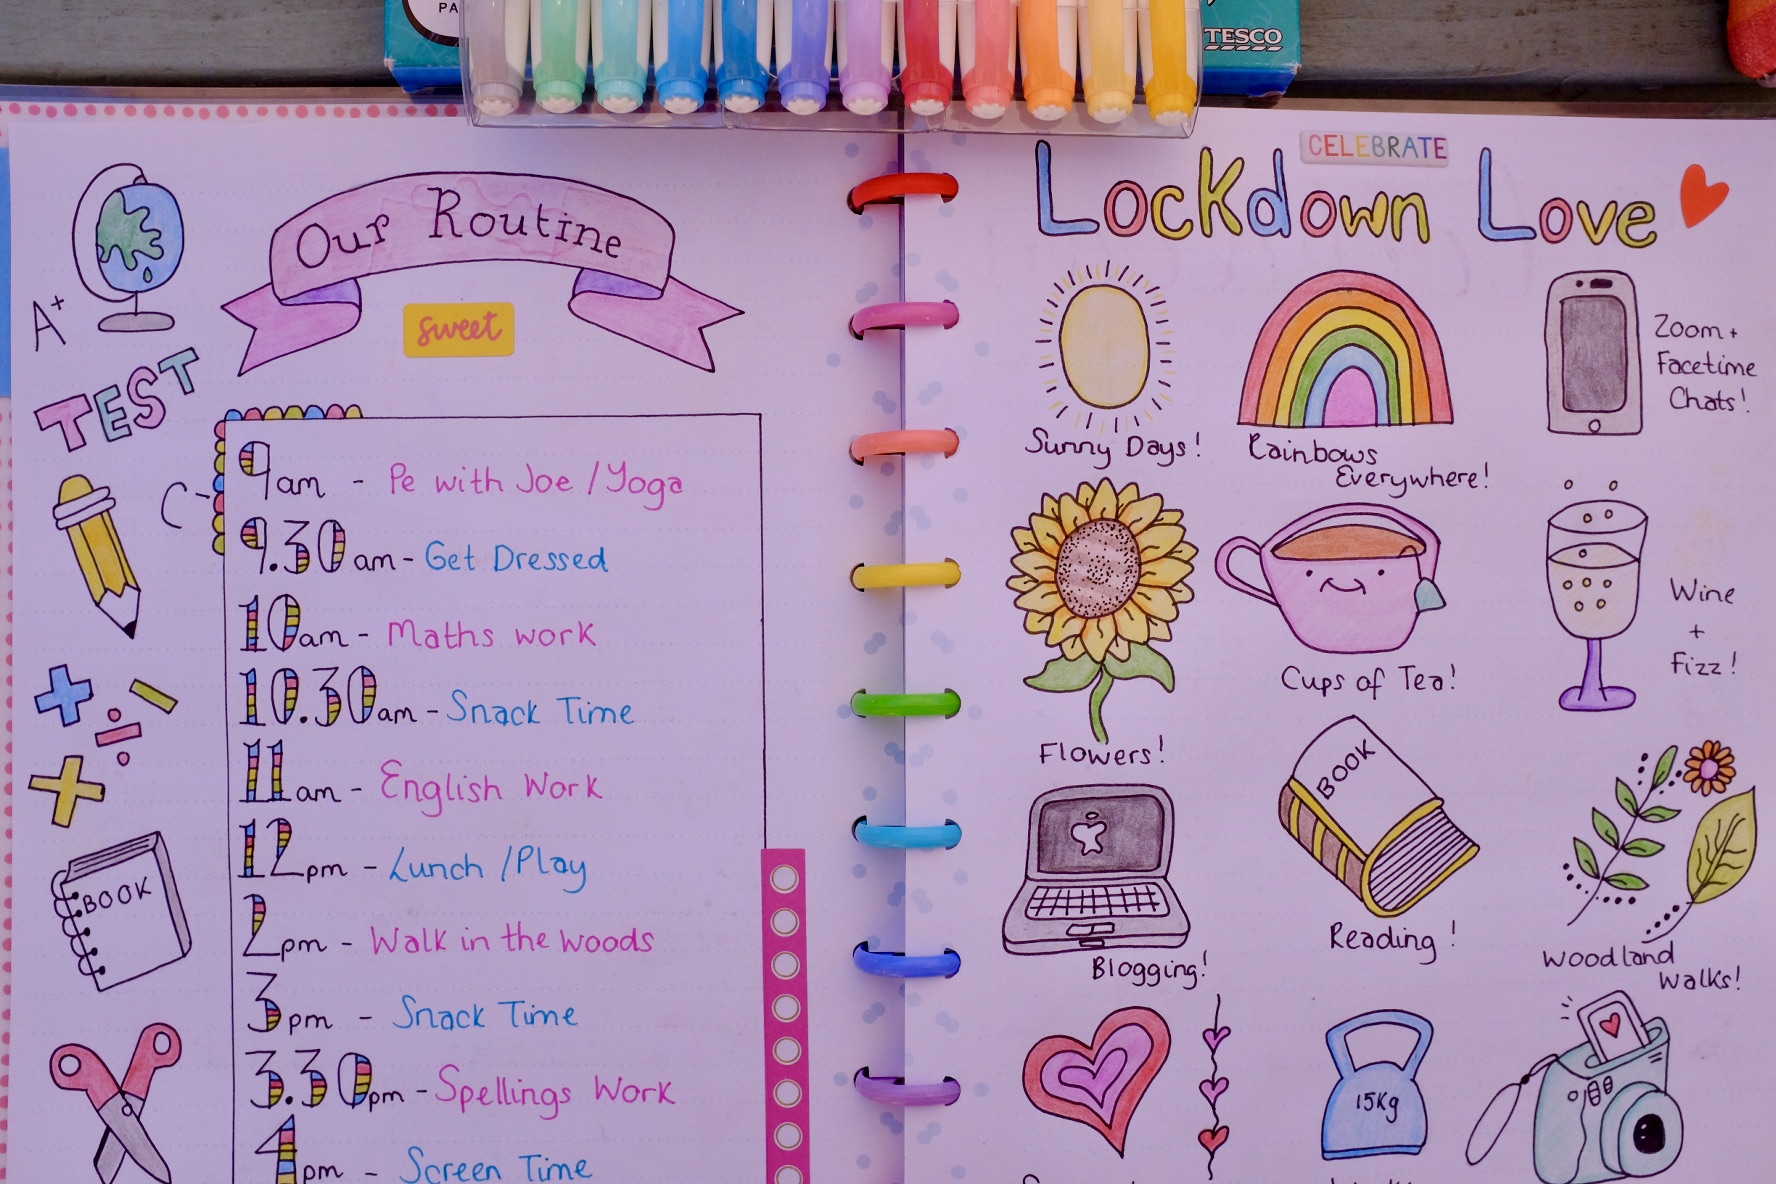 PA
TESCO
Our Routine
sweet
A+
TEST
C-
BOOK
9am - Pe with Joe / Yoga
9.30am - Get Dressed
10am - Maths work
10.30am - Snack Time
11am - English Work
12pm - Lunch / Play
2pm - Walk in the woods
3pm - Snack Time
3.30pm - Spellings Work
4pm - Screen Time
CELEBRATE
Lockdown Love
Sunny Days!
Rainbows
Everywhere!
Zoom +
Facetime
Chats!
Flowers!
Cups of Tea!
Wine
+
Fizz!
Blogging!
BOOK
Reading!
Woodland
Walks!
15Kg